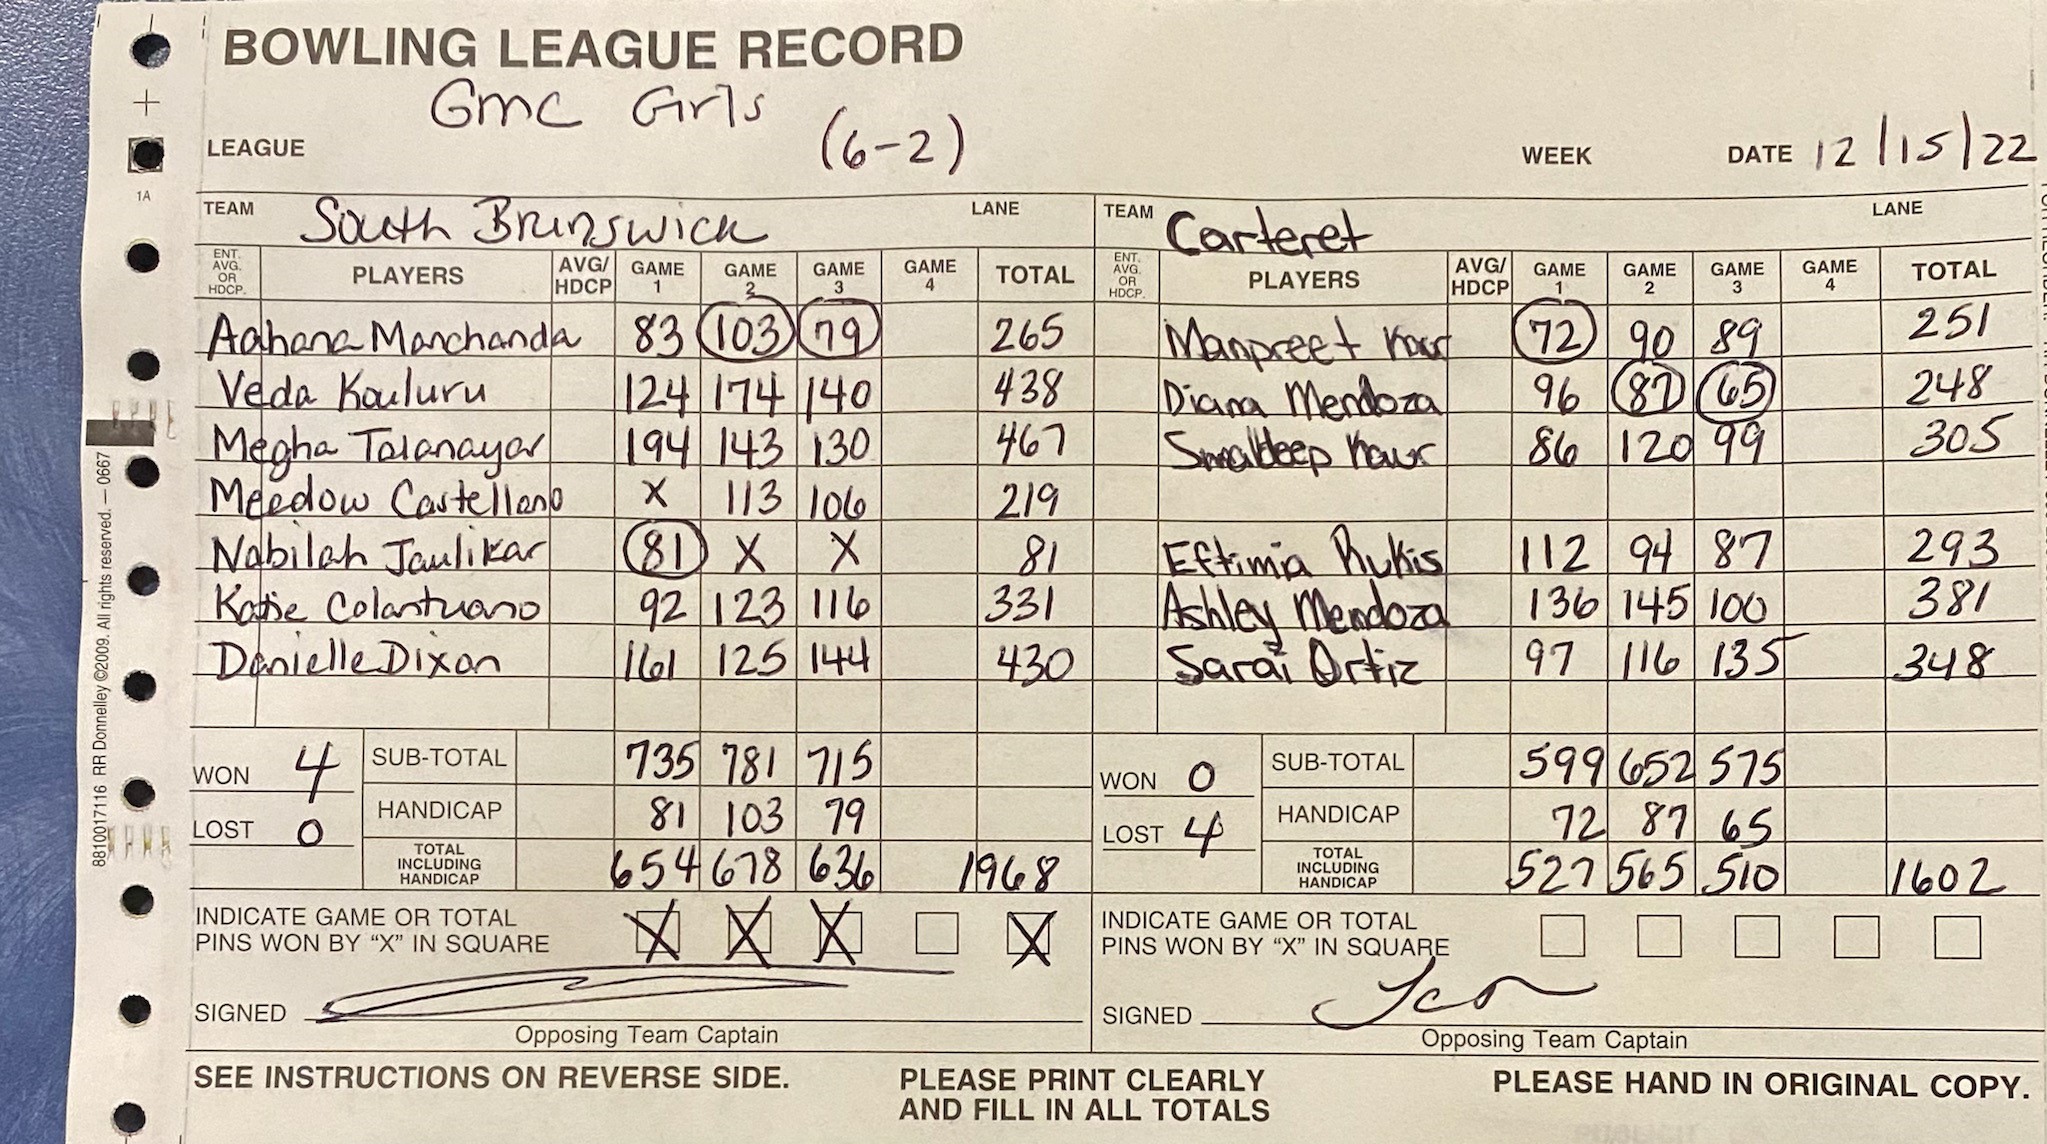 BOWLING LEAGUE RECORD
Gmc Girls
LEAGUE (6-2) WEEK DATE 12/15/22
1A
TEAM South Brunswick LANE
ENT. AVG. OR HDCP. PLAYERS AVG/ HDCP GAME 1 GAME 2 GAME 3 GAME 4 TOTAL
Aahana Manchanda 83 103 79 265
Veda Kouluru 124 174 140 438
Megha Talanayar 194 143 130 467
Meedow Castellano X 113 106 219
Nabilah Jaulikar 81 X X 81
Katie Colantuano 92 123 116 331
Danielle Dixon 161 125 144 430
WON 4 SUB-TOTAL 735 781 715
LOST 0 HANDICAP 81 103 79
TOTAL INCLUDING HANDICAP 654 678 636 1968
INDICATE GAME OR TOTAL
PINS WON BY "X" IN SQUARE X X X X
SIGNED
Opposing Team Captain
TEAM Carteret LANE
ENT. AVG. OR HDCP. PLAYERS AVG/ HDCP GAME 1 GAME 2 GAME 3 GAME 4 TOTAL
Manpreet Kaur 72 90 89 251
Diana Mendoza 96 87 65 248
Kaur 86 120 99 305
Eftimia Rukis 112 94 87 293
Ashley Mendoza 136 145 100 381
Sarai Ortiz 97 116 135 348
WON 0 SUB-TOTAL 599 652 575
LOST 4 HANDICAP 72 87 65
TOTAL INCLUDING HANDICAP 527 565 510 1602
INDICATE GAME OR TOTAL
PINS WON BY "X" IN SQUARE
SIGNED
Opposing Team Captain
SEE INSTRUCTIONS ON REVERSE SIDE.
PLEASE PRINT CLEARLY
AND FILL IN ALL TOTALS
PLEASE HAND IN ORIGINAL COPY.
8810017116 RR Donnelley ©2009. All rights reserved. – 0667